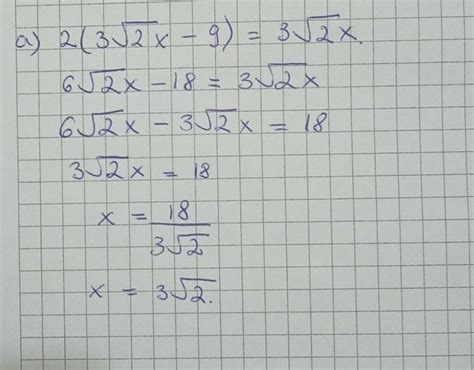 a) 2(3√2x − 9) = 3√2x.
6√2x − 18 = 3√2x
6√2x − 3√2x = 18
3√2x = 18
x = 18/3√2
x = 3√2.